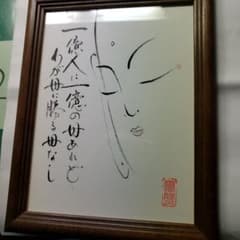 一億人に一億の母あれど
わが母に勝る母なし